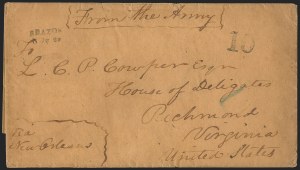 From the Army
BRAZOS
10
To
L. C. P. Cowper Esqr
House of Deligates
Richmond
Virginia
United States
Via
New Orleans